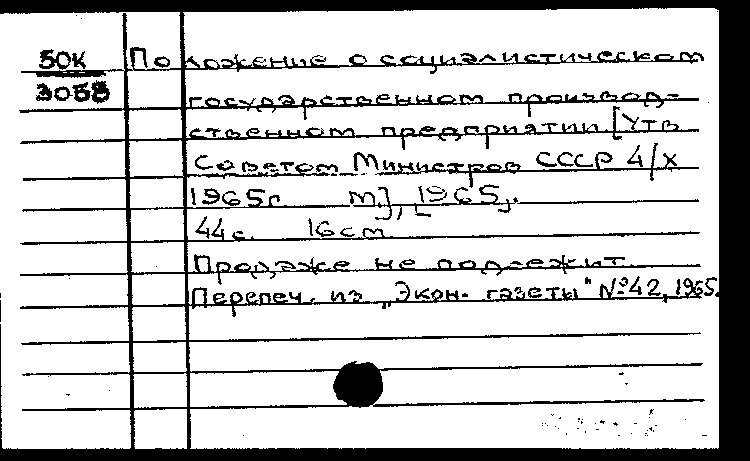 50К
3055
Положение о социалистическом
государственном производ-
ственном предприятии [Утв
Советом Министров СССР 4/X
1965г. М.], [1965].
44с. 16см
Продаже не подлежит.
Перепеч. из „Экон. газеты" №42, 1965.